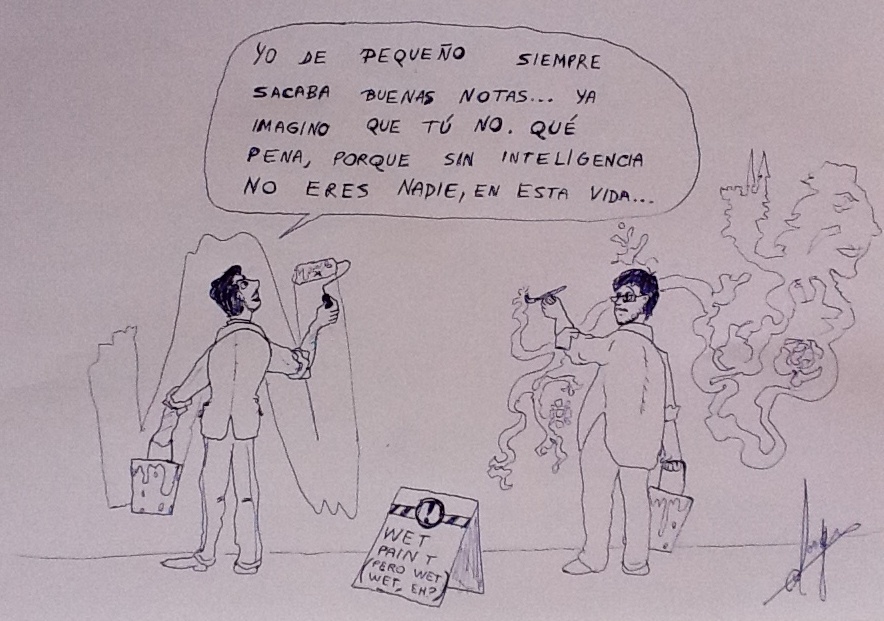 YO DE PEQUEÑO SIEMPRE
SACABA BUENAS NOTAS... YA
IMAGINO QUE TÚ NO. QUÉ
PENA, PORQUE SIN INTELIGENCIA
NO ERES NADIE, EN ESTA VIDA...
!
WET
PAINT
(PERO WET
WET, EH?)